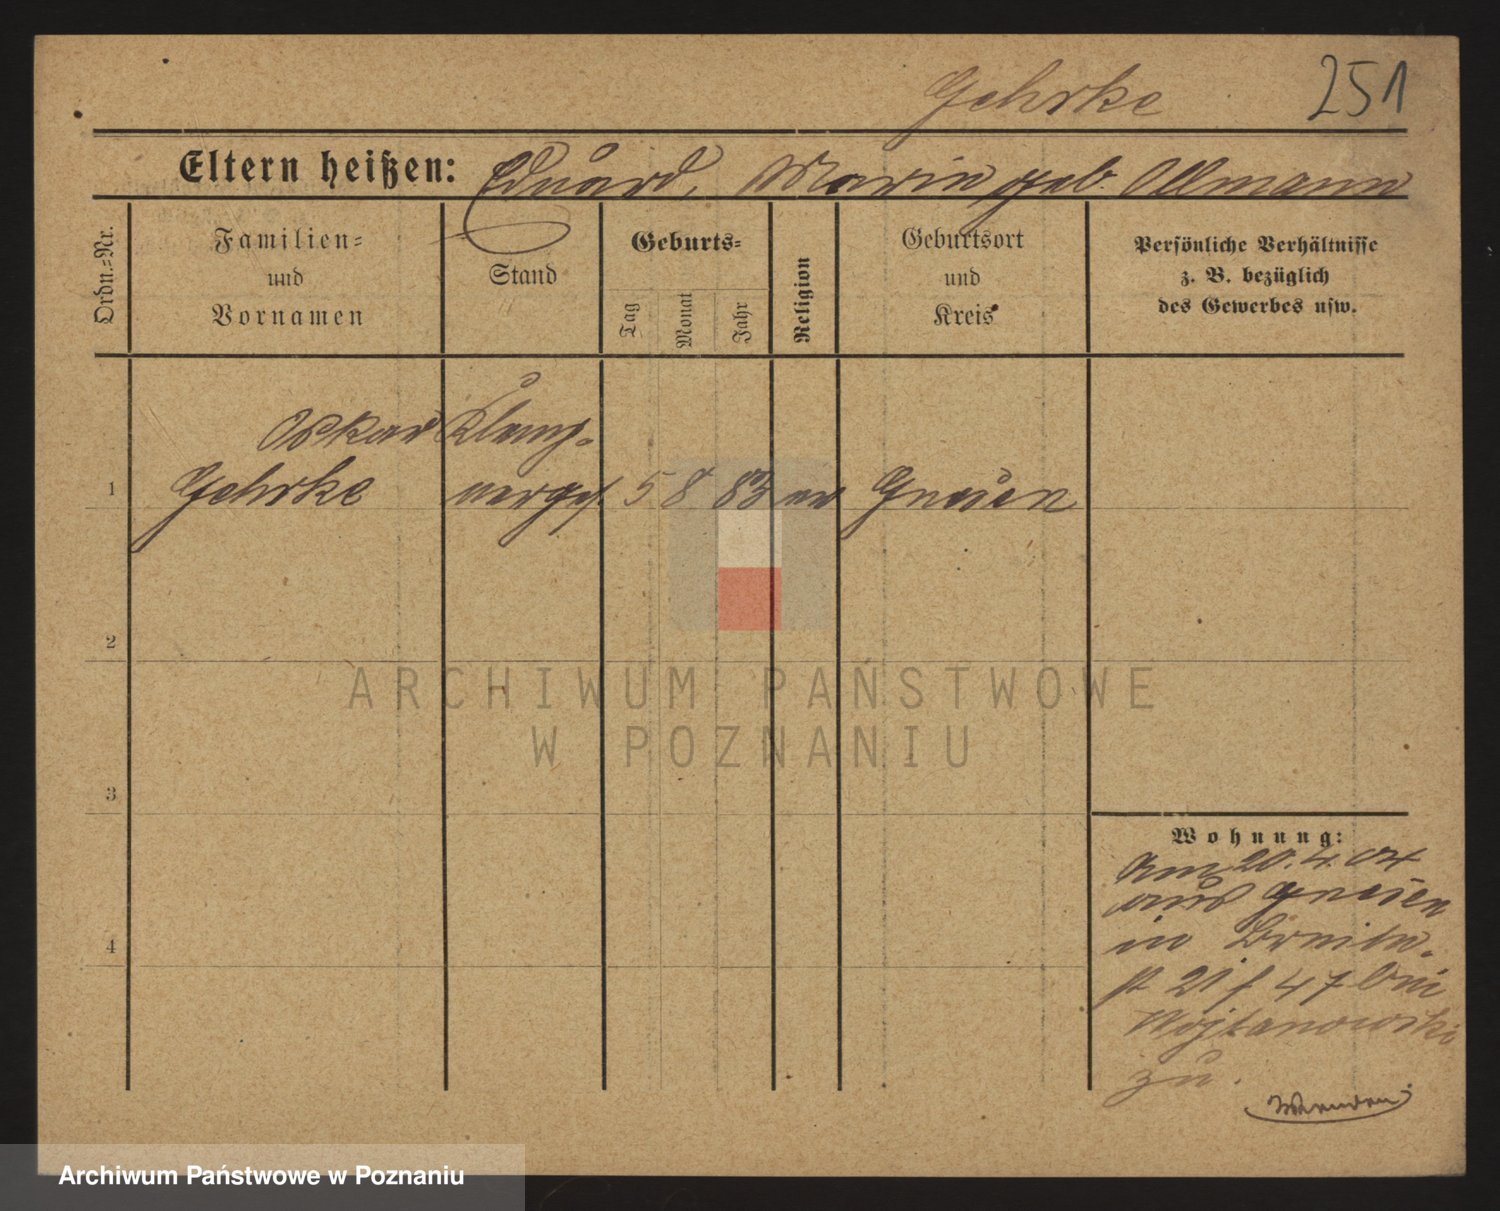 Gehrke 251
Eltern heißen: Eduard, Marie geb. Ullmann
Ordn.-Nr.
Familien-
und
Vornamen
Stand
Geburts-
Tag
Monat
Jahr
Religion
Geburtsort
und
Kreis
Persönliche Verhältnisse
z. B. bezüglich
des Gewerbes usw.
Oskar Klemp-
1 Gehrke nerges. 5 8 83 ev Gnesen
2
ARCHIWUM PAŃSTWOWE
W POZNANIU
3
Wohnung:
am 20.4.04
aus Gnesen
in
4
st 21 f 47 bei
Wojtanowski
zu.
Archiwum Państwowe w Poznaniu